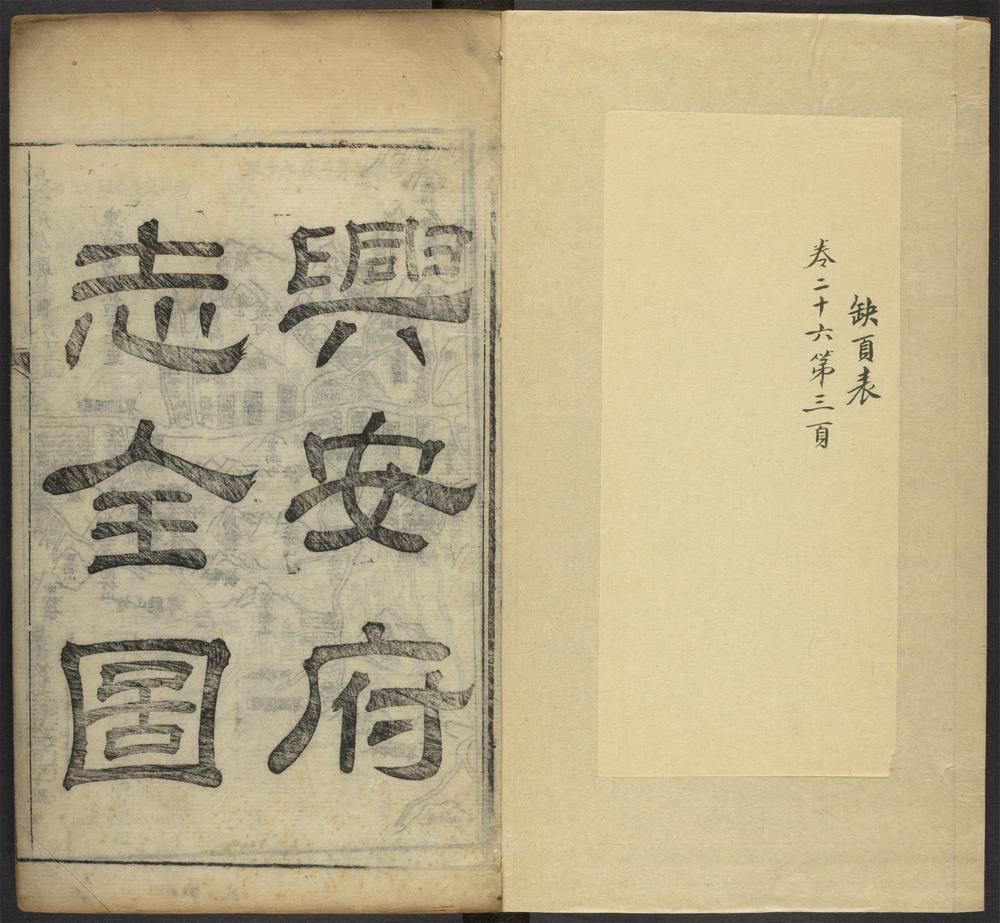 缺頁表
卷二十六第三頁
興安府
志全圖